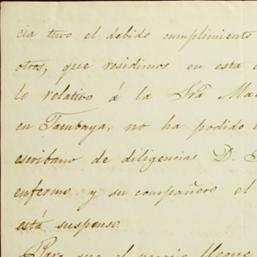 cia tuvo el debido cumplimiento
otros, que residimos en esta
lo relativo á la Sra. Ma
en Tacubaya, no ha podido
escribano de diligencias D.
enfermo y su compañero el
está suspenso.
Para que el